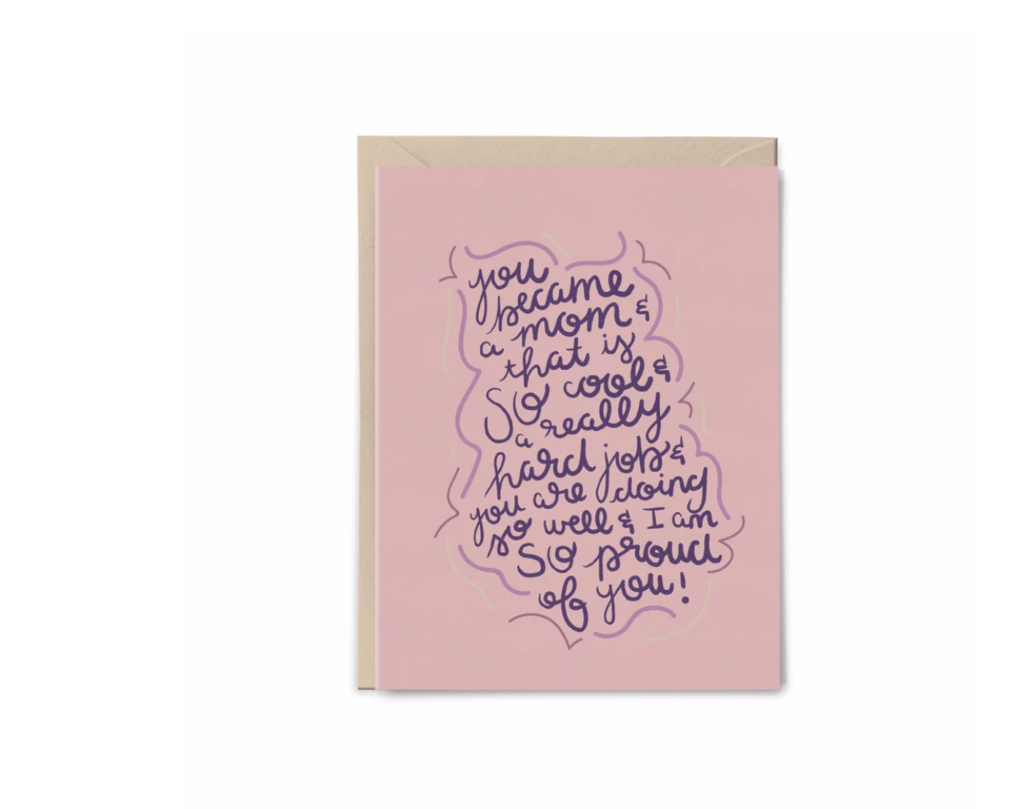 you
became
a mom &
that is
So cool &
a really
hard job &
you are doing
so well & I am
So proud
of you!